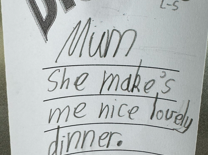 L-S
Mum
She make's
me nice lovely
dinner.